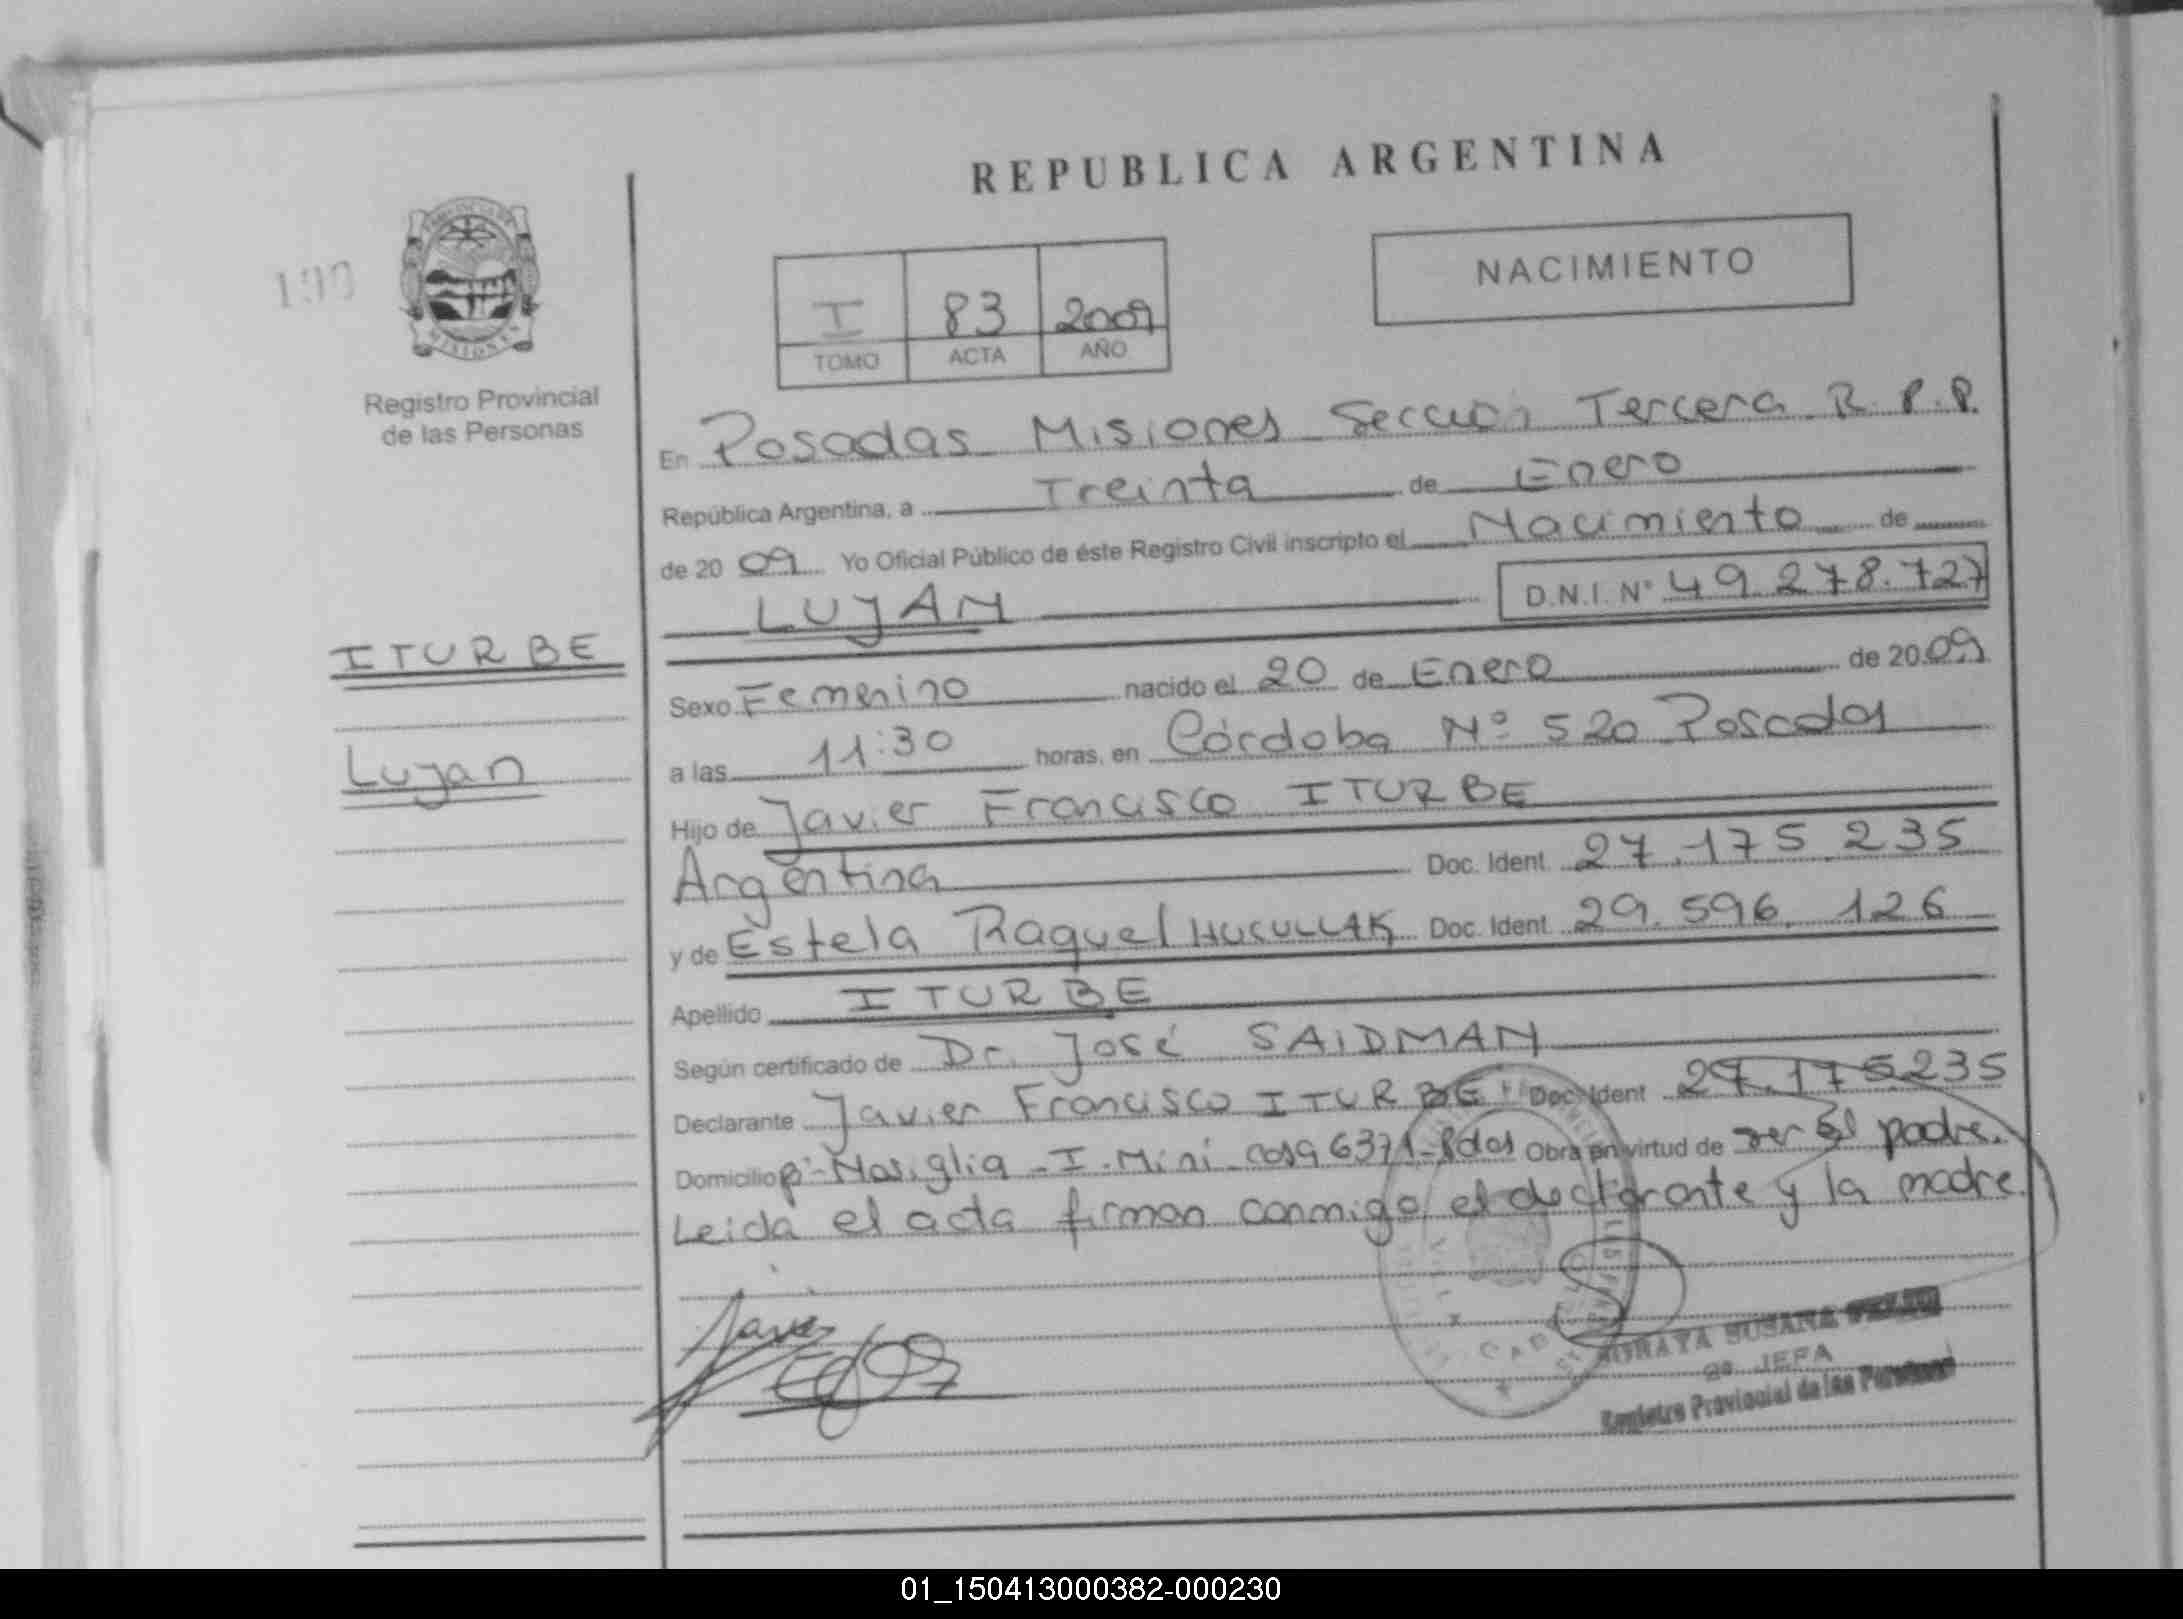 REPUBLICA ARGENTINA
NACIMIENTO
I 83 2009
TOMO ACTA AÑO
Registro Provincial
de las Personas
En Posadas Misiones Sección Tercera R.P.P.
República Argentina, a Treinta de Enero
de 2009 Yo Oficial Público de éste Registro Civil inscripto el Nacimiento de
LUJAN D.N.I. N° 49.278.727
ITURBE
Lujan
Sexo Femenino nacido el 20 de Enero de 2009
a las 11:30 horas, en Córdoba N° 520 Posadas
Hijo de Javier Francisco ITURBE
Argentina Doc. Ident. 27.175.235
y de Estela Raquel HUCULLAK Doc. Ident. 29.596.126
Apellido ITURBE
Según certificado de Dr. José SAIDMAN
Declarante Javier Francisco ITURBE Doc. Ident 27.175.235
Domicilio Bº- Nosiglia - I. Mini - casa 6371 - Pdas Obra en virtud de ser El padre.
Leida el acta firman conmigo el declarante y la madre.
SORAYA SUSANA
JEFA
Registro Provincial de las Personas
01_150413000382-000230